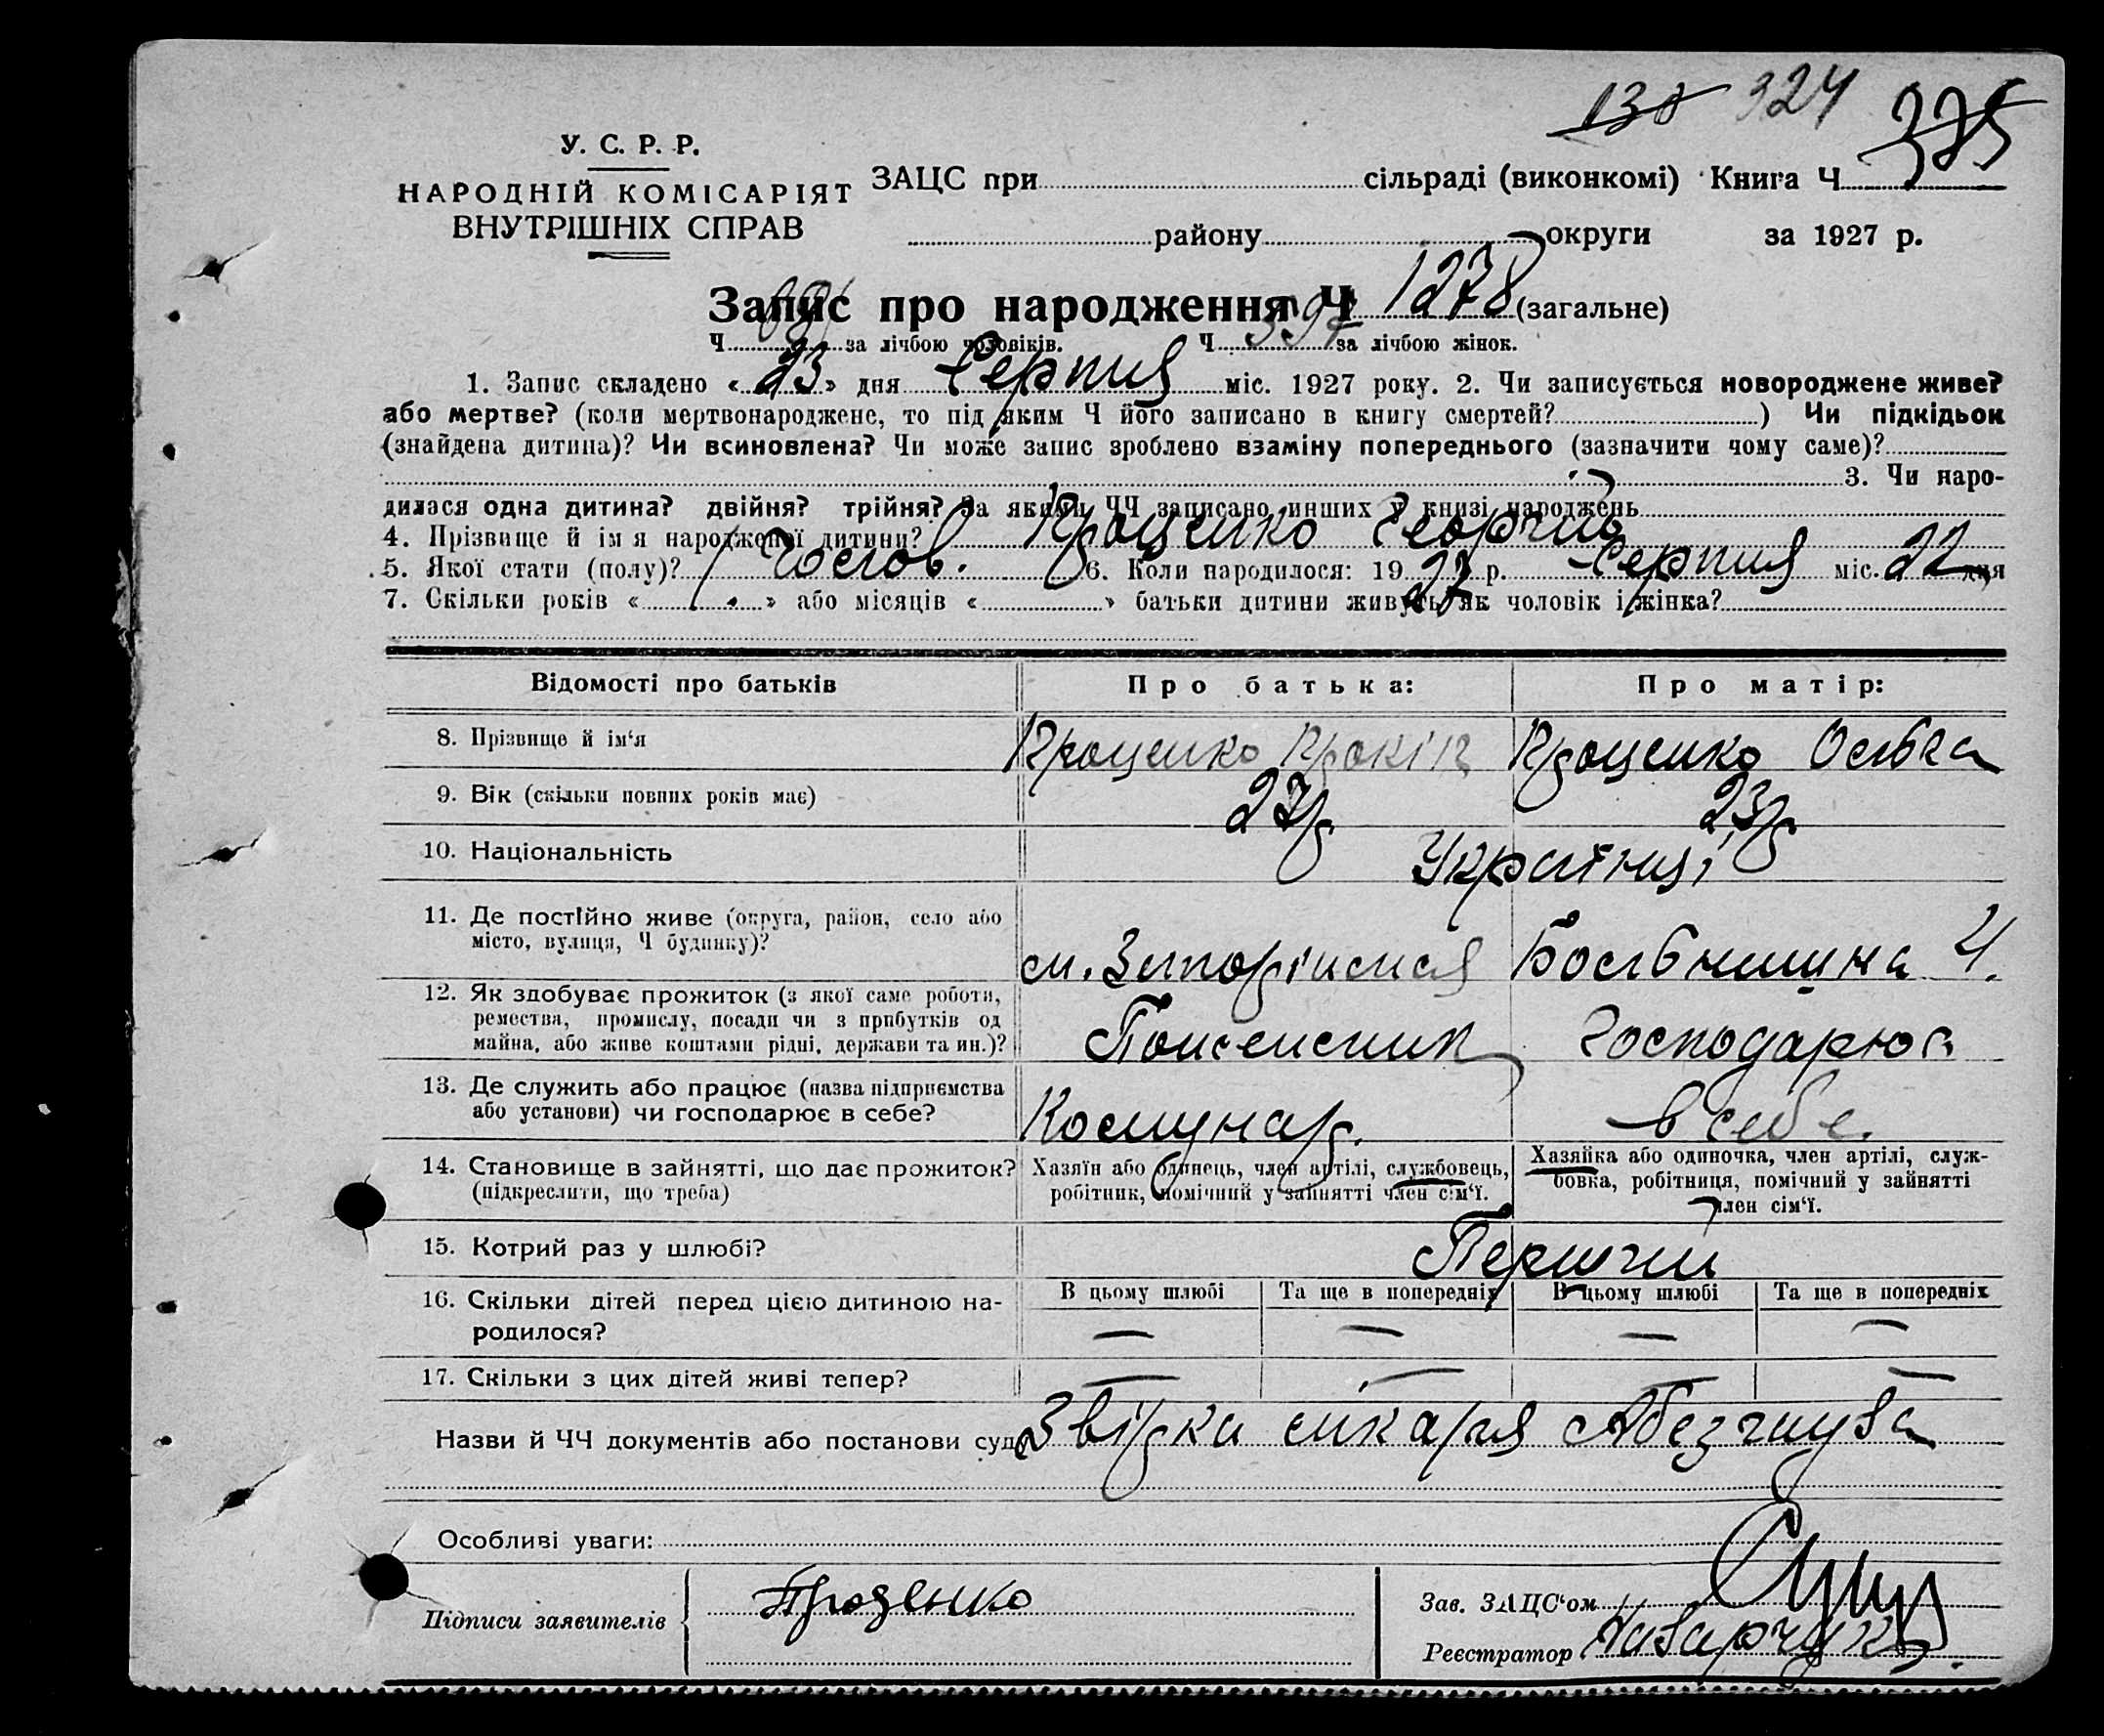 130 324 375
У. С. Р. Р.
НАРОДНІЙ КОМІСАРІЯТ
ВНУТРІШНІХ СПРАВ
ЗАЦС при сільраді (виконкомі) Книга Ч
району округи за 1927 р.
Запис про народження Ч 1278 (загальне)
Ч за лічбою чоловіків. Ч 597 за лічбою жінок.
1. Запис складено « 23 » дня Серпня міс. 1927 року. 2. Чи записується новороджене живе?
або мертве? (коли мертвонароджене, то під яким Ч його записано в книгу смертей? ) Чи підкідьок
(знайдена дитина)? Чи всиновлена? Чи може запис зроблено взаміну попереднього (зазначити чому саме)?
3. Чи наро-
дилася одна дитина? двійня? трійня? За якими ЧЧ записано инших у книзі народжень
4. Прізвище й ім'я народженої дитини? Проценко Георгій
5. Якої стати (полу)? Чолов. 6. Коли народилося: 19 27 р. Серпня міс. 22 дня
7. Скільки років « » або місяців « » батьки дитини живуть як чоловік і жінка?
Відомості про батьків Про батька: Про матір:
8. Прізвище й ім'я Проценко Прокіп Проценко Ольга
9. Вік (скільки повних років має) 27 р 23 р
10. Національність Українці
11. Де постійно живе (округа, район, село або
місто, вулиця, Ч будинку)? м. Запоріжжя Більнишна 4.
12. Як здобуває прожиток (з якої саме роботи,
ремества, промислу, посади чи з прибутків од
майна, або живе коштами рідні, держави та ин.)? Господарює
13. Де служить або працює (назва підприємства
або установи) чи господарює в себе? Комунар. в себе.
14. Становище в зайнятті, що дає прожиток?
(підкреслити, що треба)
Хазяїн або одинець, член артілі, службовець,
робітник, помічний у зайнятті член сім'ї.
Хазяйка або одиночка, член артілі, служ-
бовка, робітниця, помічний у зайнятті
член сім'ї.
15. Котрий раз у шлюбі? Перший
16. Скільки дітей перед цією дитиною на-
родилося?
В цьому шлюбі Та ще в попередніх В цьому шлюбі Та ще в попередніх
— — — —
17. Скільки з цих дітей живі тепер? — — — —
Назви й ЧЧ документів або постанови суду Звірка лікаря
Особливі уваги:
Підписи заявителів Проценко
Зав. ЗАЦС'ом
Реєстратор